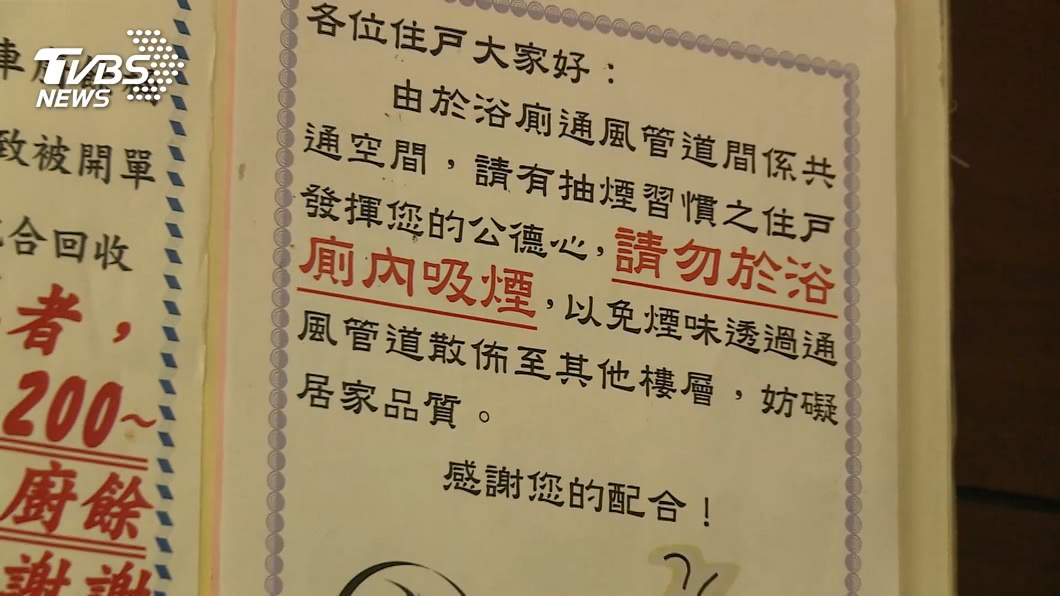 TVBS
NEWS
各位住戶大家好：
由於浴廁通風管道間係共
通空間，請有抽煙習慣之住戶
發揮您的公德心,請勿於浴
廁內吸煙,以免煙味透過通
風管道散佈至其他樓層，妨礙
居家品質。
感謝您的配合！
車
致被開單
合回收
者，
200~
廚餘
謝謝